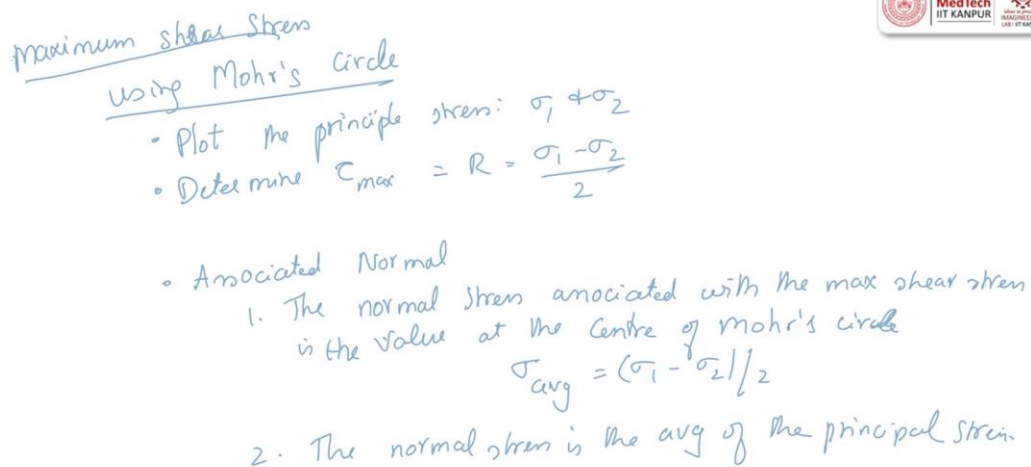 MedTech
IIT KANPUR
Maximum Shear Stress
using Mohr's Circle
• Plot the principle stress: σ₁ & σ₂
• Determine τmax = R = σ₁ - σ₂ / 2
• Associated Normal
1. The normal stress associated with the max shear stress
is the value at the Centre of mohr's circle
σavg = (σ₁ - σ₂)/2
2. The normal stress is the avg of the principal stress.